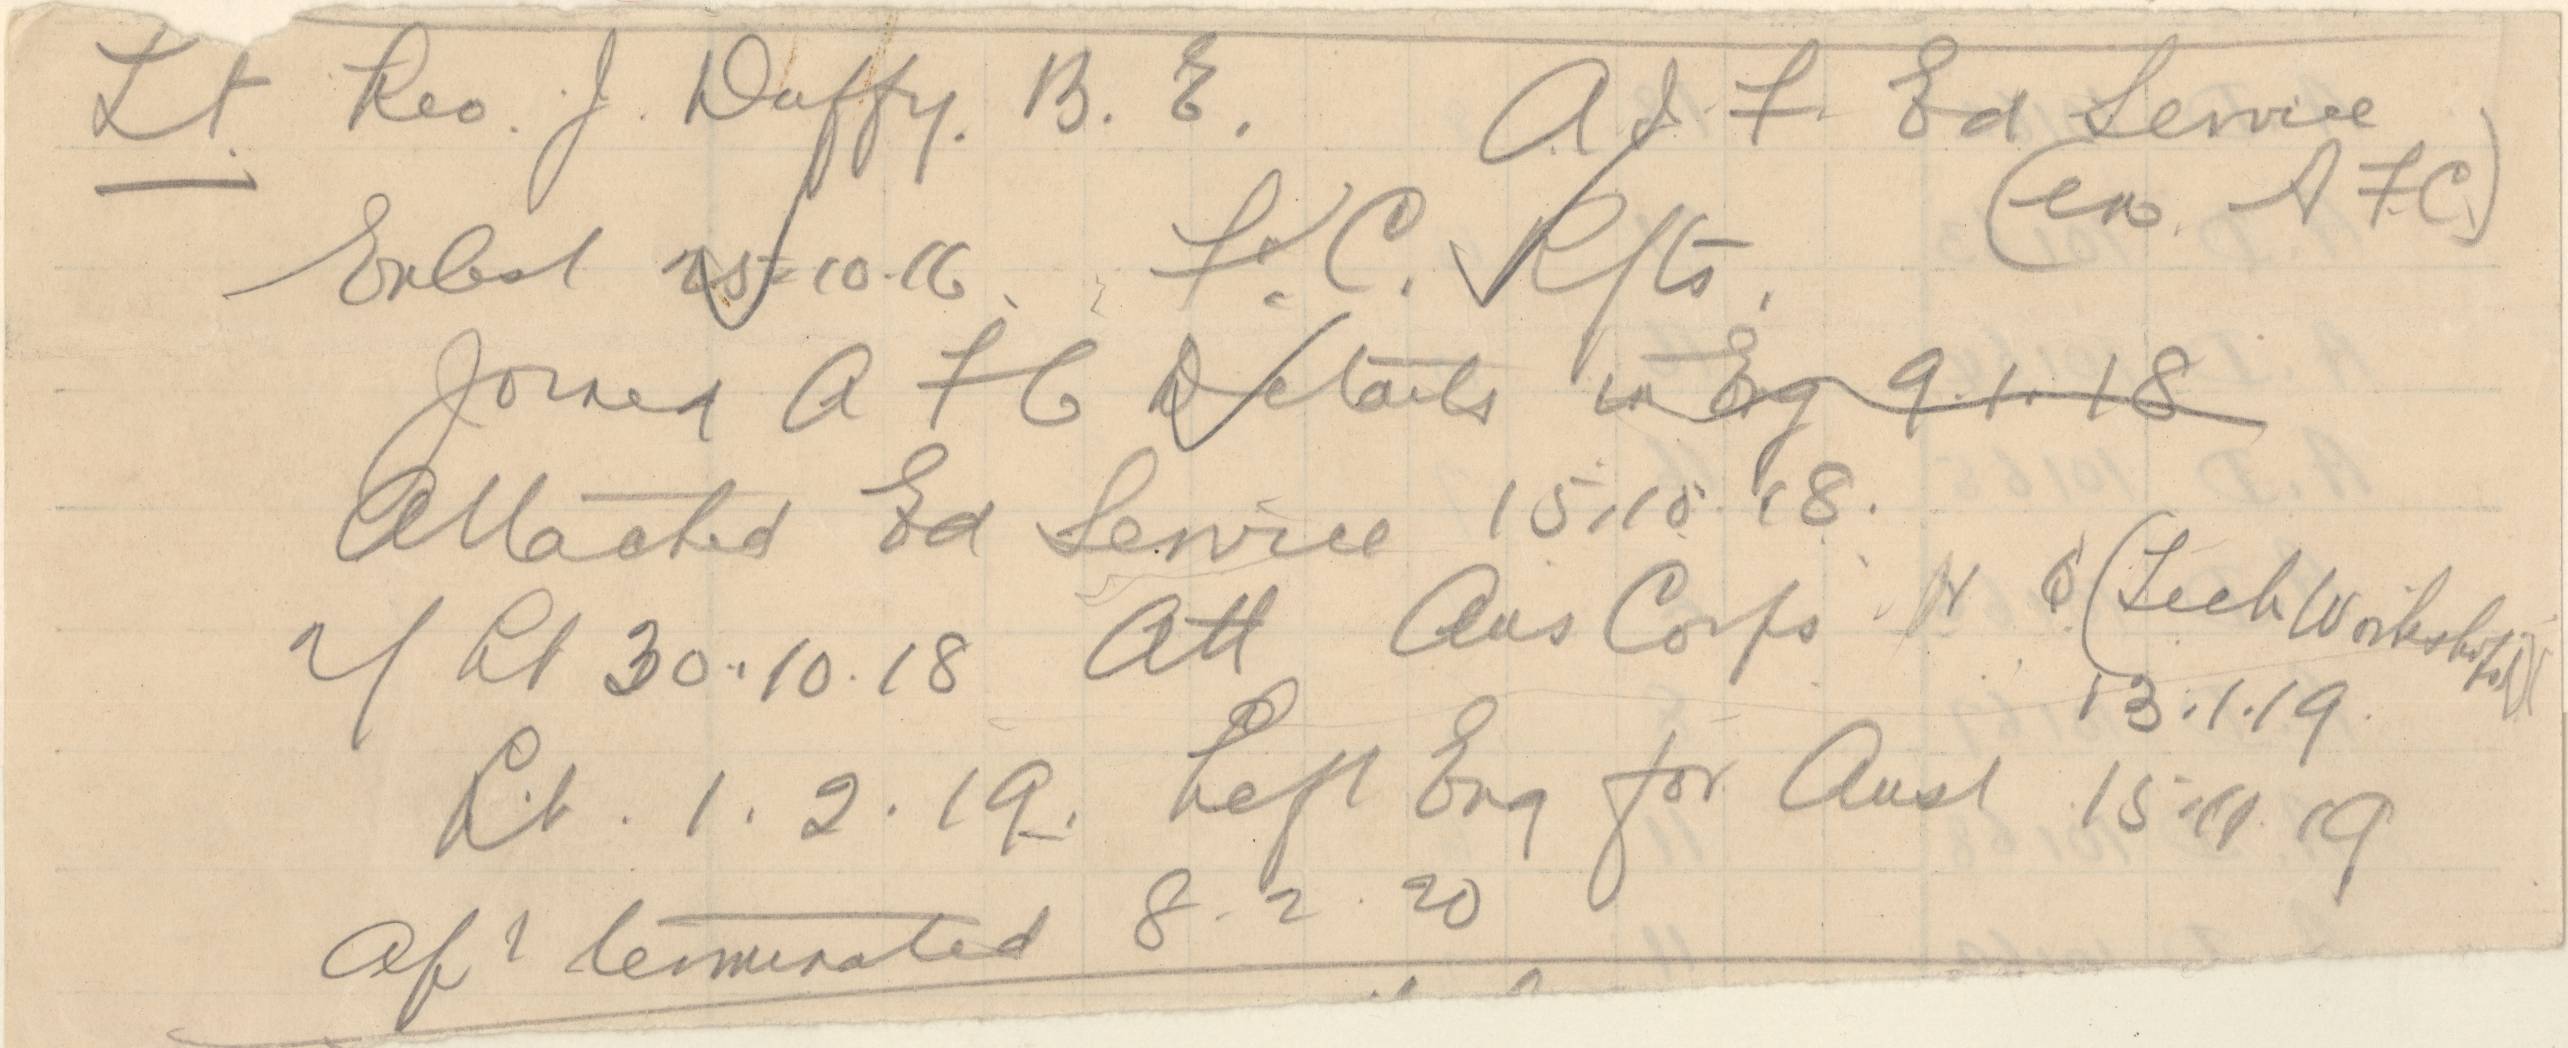 Lt. Reo. J. Duffy. B. E. A I F Ed Service
(ex A F C)
Enlist 25-10-16. F. C. Rfts.
Joined A F C Details in Eng 9.1.18
Attached Ed Service 15.10.18.
2/Lt 30.10.18 Att Aus Corps (Tech Workshops)
13.1.19.
Lt. 1.2.19. Left Eng for Aust 15.11.19
terminated 8.2.20